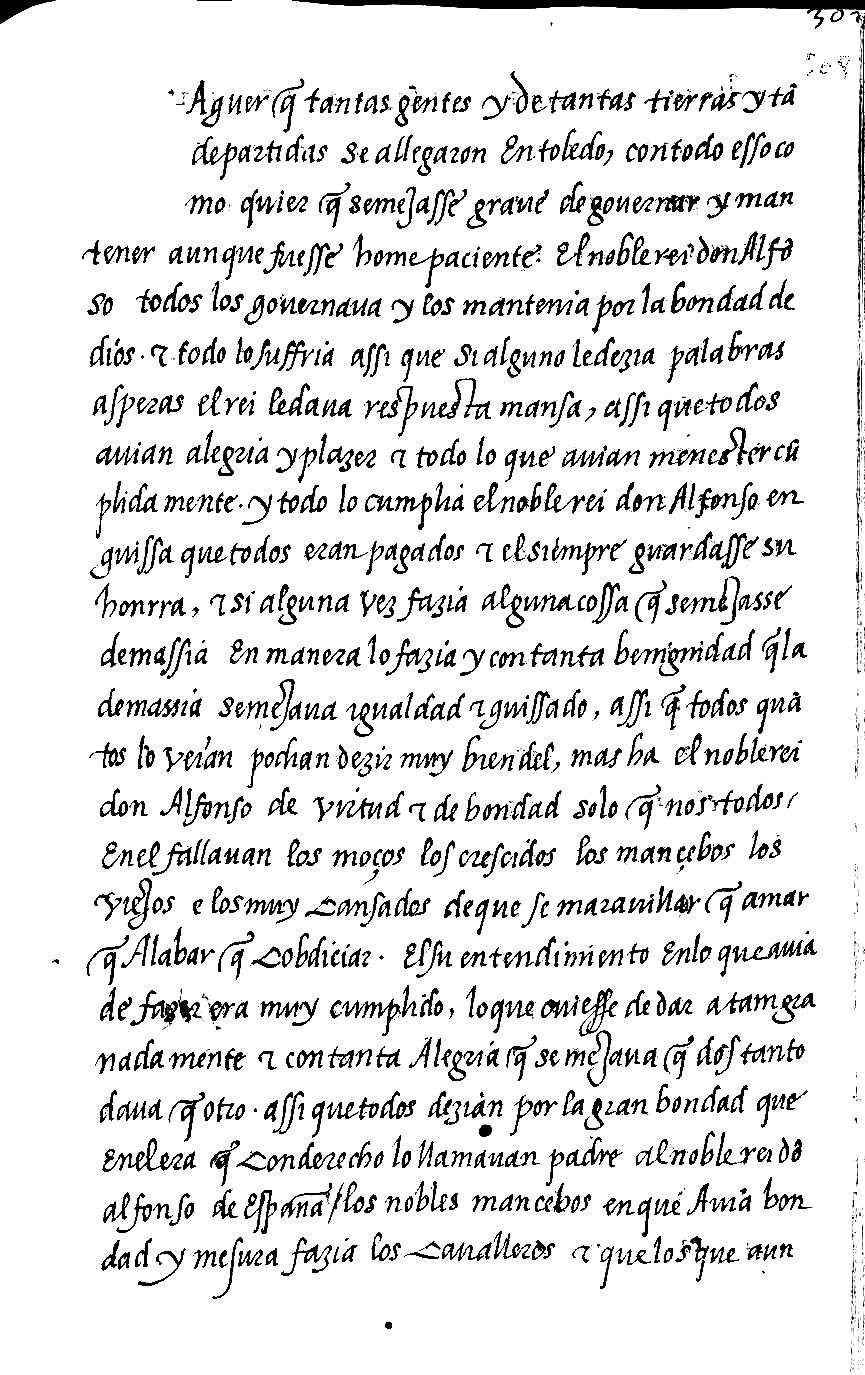 302
208
Aguer q̃ tantas gentes y de tantas tierras y tã
departidas se allegaron En toledo, con todo esso co
mo quier q̃ semejasse graue de gouernar y man
tener aunque fuesse home paciente. El noble rei don Alfõ
so todos los gouernaua y los mantenia por la bondad de
dios. ⁊ todo lo suffria assi que si alguno le dezia palabras
asperas el rei le daua respuesta mansa, assi que todos
auian alegria y plazer ⁊ todo lo que auian menester cũ
plida mente. y todo lo cumplia el noble rei don Alfonso en
guissa que todos eran pagados ⁊ el siempre guardasse su
honrra, ⁊ si alguna vez fazia alguna cossa q̃ semejasse
demassia En manera lo fazia y con tanta benignidad q̃ la
demassia semejaua igualdad ⁊ guissado, assi q̃ todos quã
tos lo veian podian dezir muy bien del, mas ha el noble rei
don Alfonso de virtud ⁊ de bondad solo q̃ nos todos/
En el fallauan los moços los crescidos los mançebos los
viejos e los muy cansados de que se marauillar q̃ amar
q̃ Alabar q̃ cobdiciar. El su entendimiento En lo que auia
de fazer era muy cumplido, lo que ouiesse de dar a tam gra
nada mente ⁊ con tanta Alegria q̃ semejaua q̃ dos tanto
daua q̃ otro. assi que todos dezian por la gran bondad que
En el era q̃ con derecho lo llamauan padre al noble rei dõ
alfonso de España/ los nobles mancebos en que Auia bon
dad y mesura fazia los caualleros ⁊ que los que aun